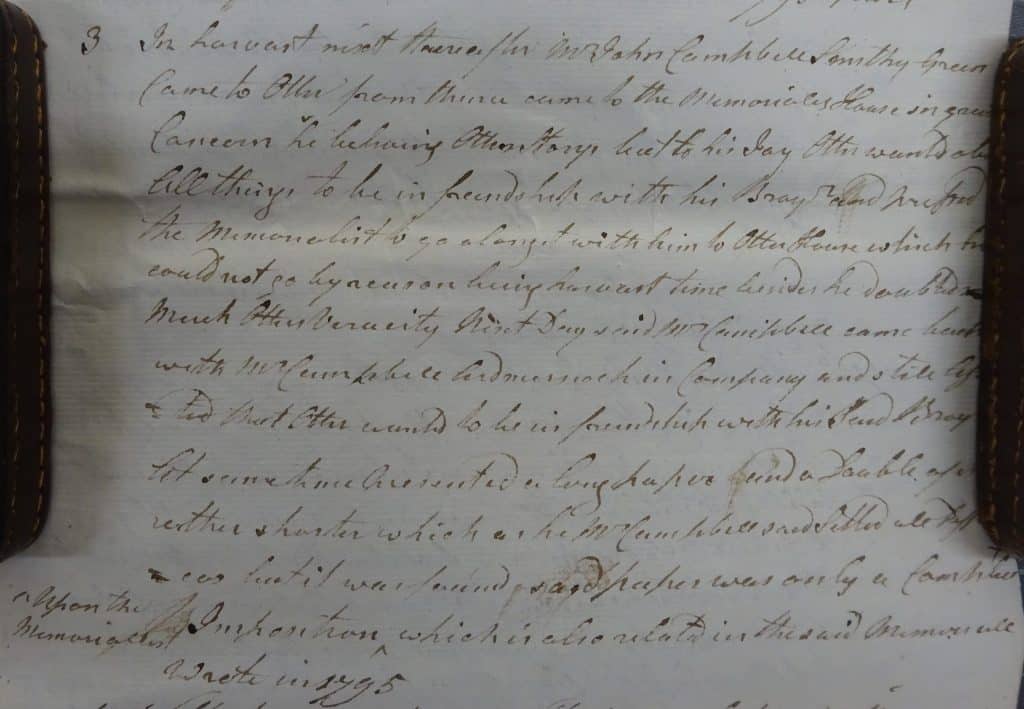 3 In harvast nixt thereafter Mr John Campbell Smithy Green
Came to Otter from thence came to the Memorialis House in great
Concern he behaving Otters Storys but to his Day Otter wanted ab
All things to be in freendship with his Broyr and pressed
the Memorialist to go alongst with him to Otter House which he
could not go by reason being harvast time besides he doubted
Much Otters Veracity Nixt Day said Mr Campbell came back
with Mr Campbell in Company and still
that Otter wanted to be in freendship with his Said Broyr
At same time Presented a long paper and a Double of it
rether shorter which as he Mr Campbell said Setled all
but it was found said paper was only a Compleat
Imposition ^ which is also related in the said Memoriall
^ Upon the
Memorialist
Wrote in 1795